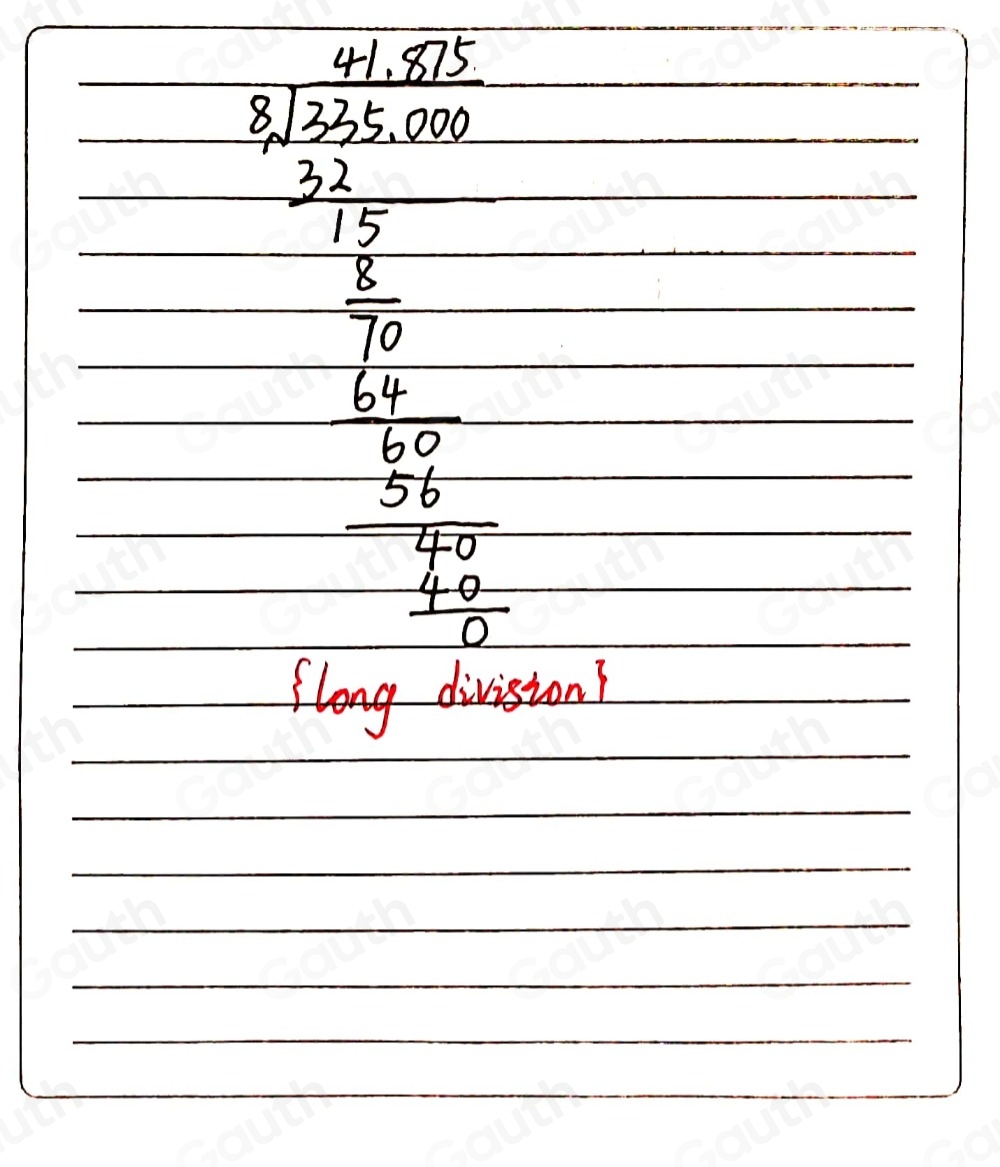 41.875
8)335.000
32
15
8
70
64
60
56
40
40
0
{long division}